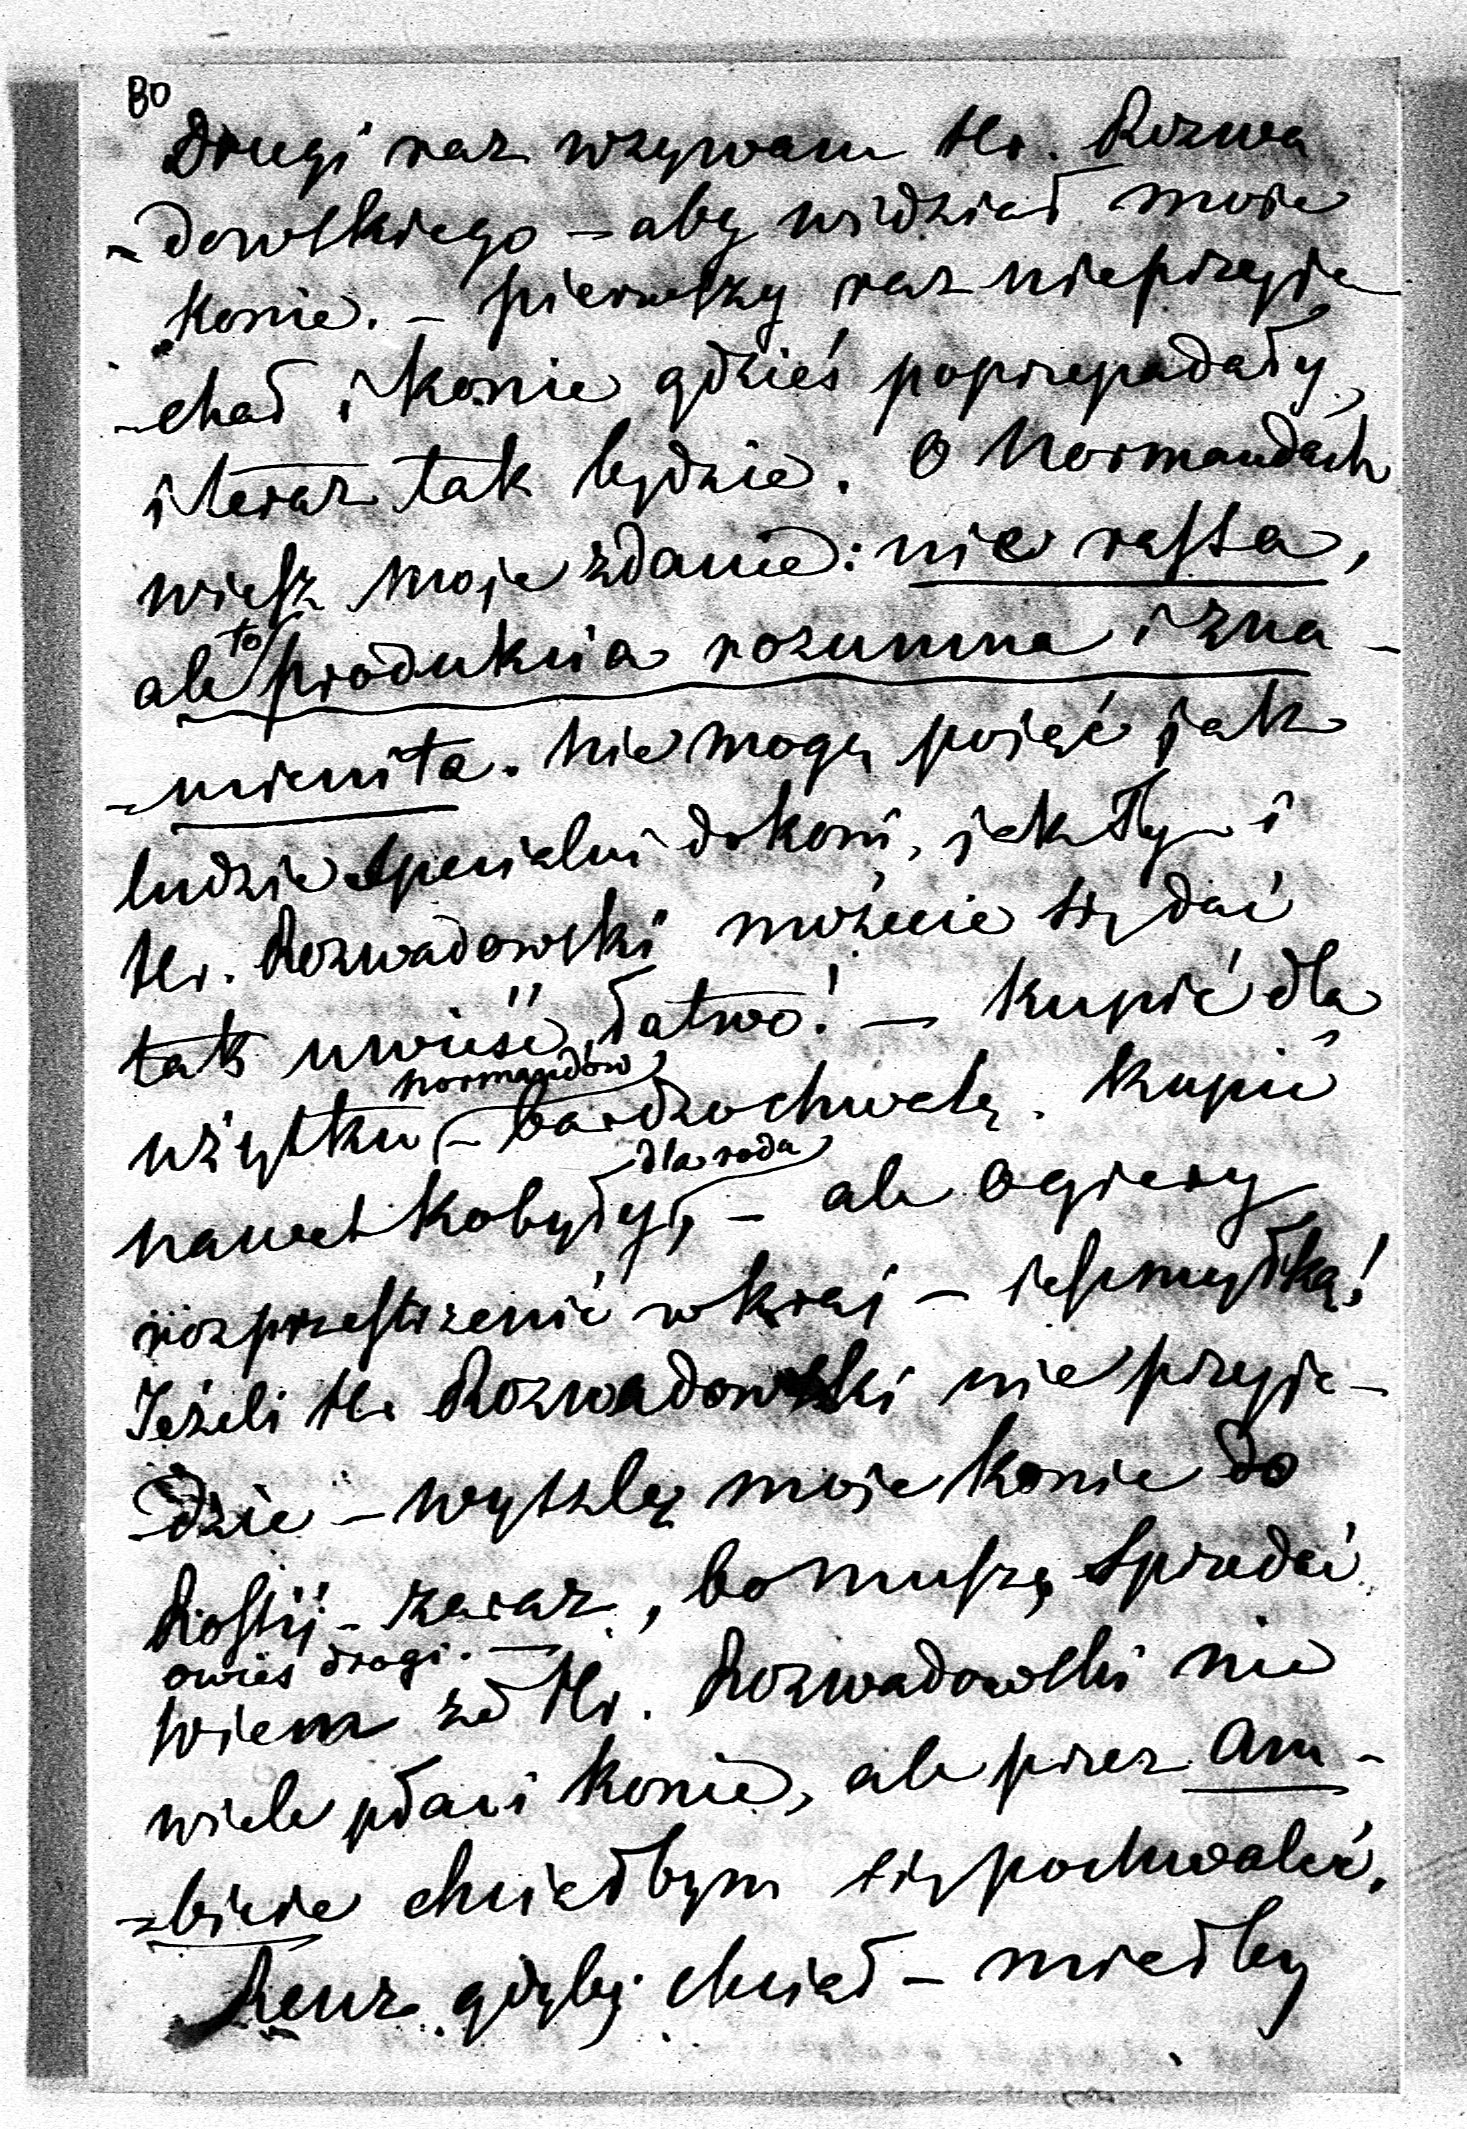 80
Drugi raz wzywam Hr. Rozwa
-dowskiego - aby widział moje
konie. - pierwszy raz nieprzyje
-chał i konie gdzieś poprzepadały,
i teraz tak będzie. O Normandach
wiesz moje zdanie: nie rassa,
ale to produkcia rozumna i zna-
-mienita. Nie mogę pojąć jak
ludzie specialni do koni, jak Ty i
Hr. Rozwadowski możecie się dać
tak uwieść łatwo! - kupić dla
normandów
użytku - bardzo chwalę. kupić
dla rodu
nawet kobyły, - ale ogiery
rozprzestrzenić w kraj - jest myłką!
Jeżeli Hr Rozwadowski nie przyje-
-dzie - wyszlę moje konie do
Rossij - zaraz, bo muszę sprzedać
owies drogi. -
Wiem że Hr. Rozwadowski nie
wiele płaci konie, ale przez am-
-bicie chciałbym się pochwalić.
Renz gdyby chciał - miałby